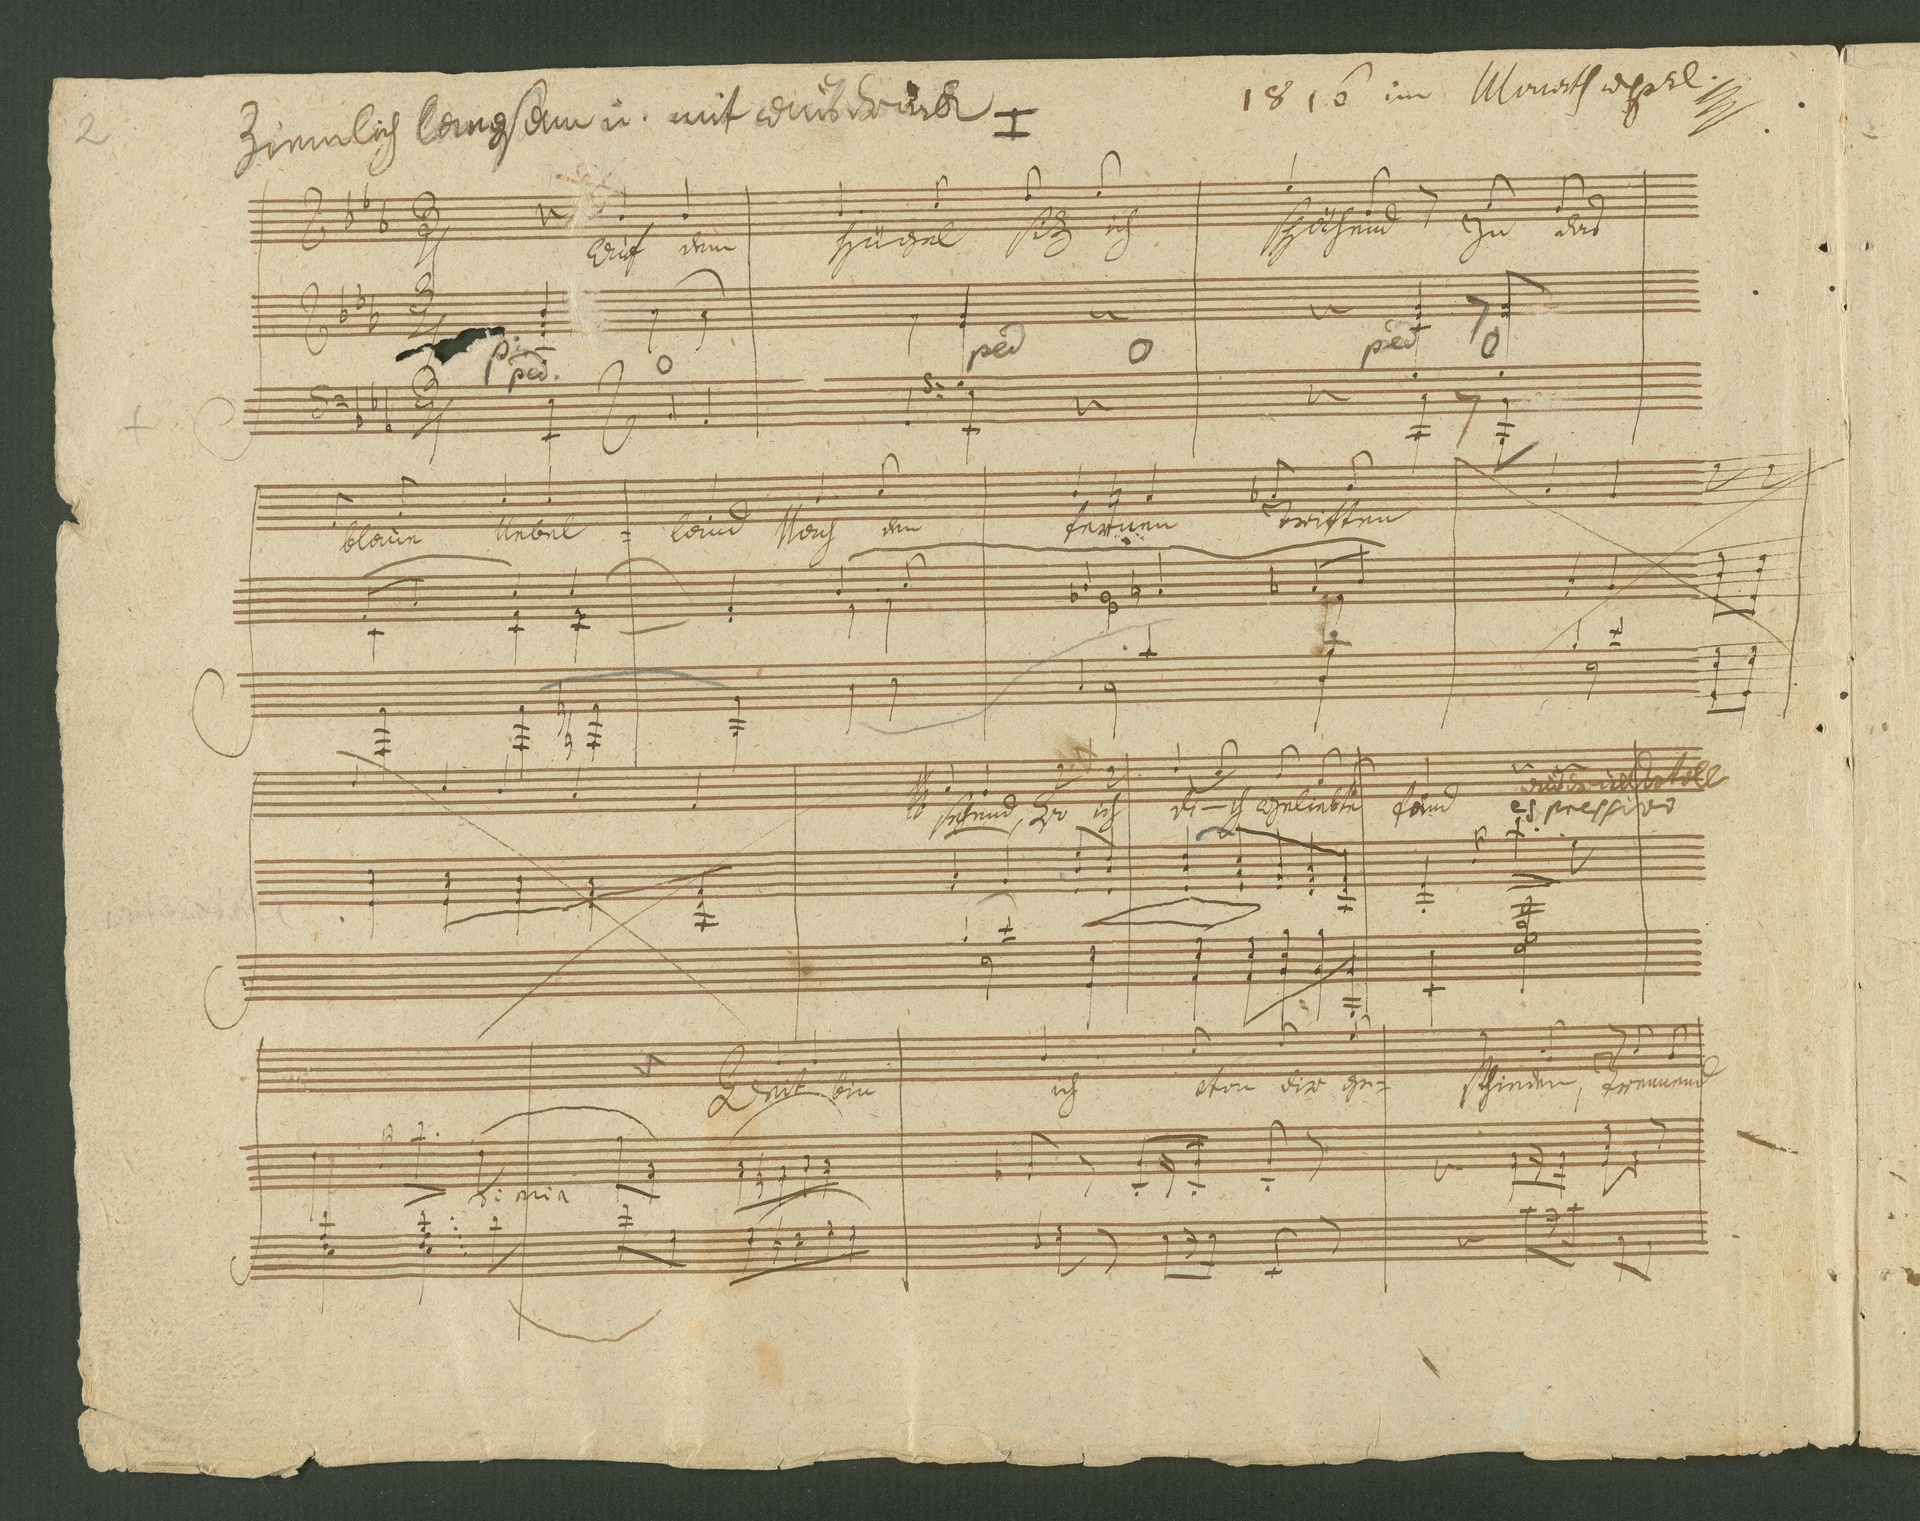 2
Ziemlich langsam u. mit ausdruck
1816 im Monath april
Auf dem Hügel sitz ich spähend In das
p:
ped. O ped O ped O
blaue Nebel = land Nach den fernen Triften
sehend, wo ich di-ch geliebte fand
espressivo
Weit bin ich von dir ge= schieden, trennend